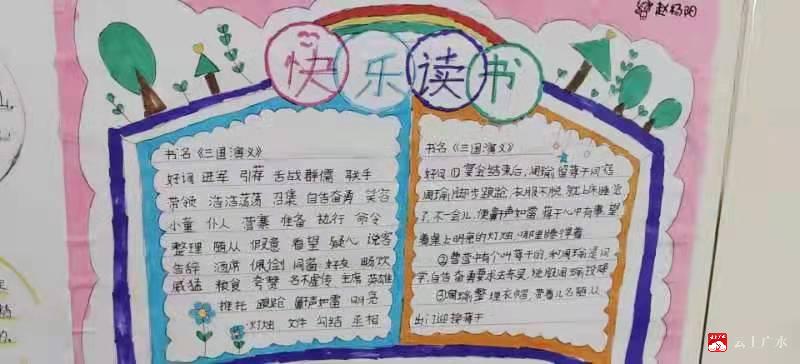 赵杨阳
快乐读书
书名《三国演义》
好词 进军 引荐 舌战群儒 联手
带领 浩浩荡荡 召集 自告奋勇 笑容
小童 仆人 营寨 准备 执行 命令
整理 随从 假意 看望 疑心 说客
告辞 酒席 佩剑 同窗 好友 畅饮
威猛 粮食 夸赞 名不虚传 主席 英雄
推托 踉跄 鼾声如雷 明亮
灯烛 文件 勾结 丞相
书名《三国演义》
好词 ①宴会结束后,周瑜留蒋干同宿
周瑜脚步踉跄,衣服不脱,就上床睡觉
了,不一会儿,便鼾声如雷,蒋干心中有事,望
着桌上明亮的灯烛,哪里睡得着
②曹营中有个叫蒋干的,和周瑜是同
学,自告奋勇要求去东吴,说服周瑜投降
③周瑜整理衣冠,带着几名随从
出门迎接蒋干
云上广水